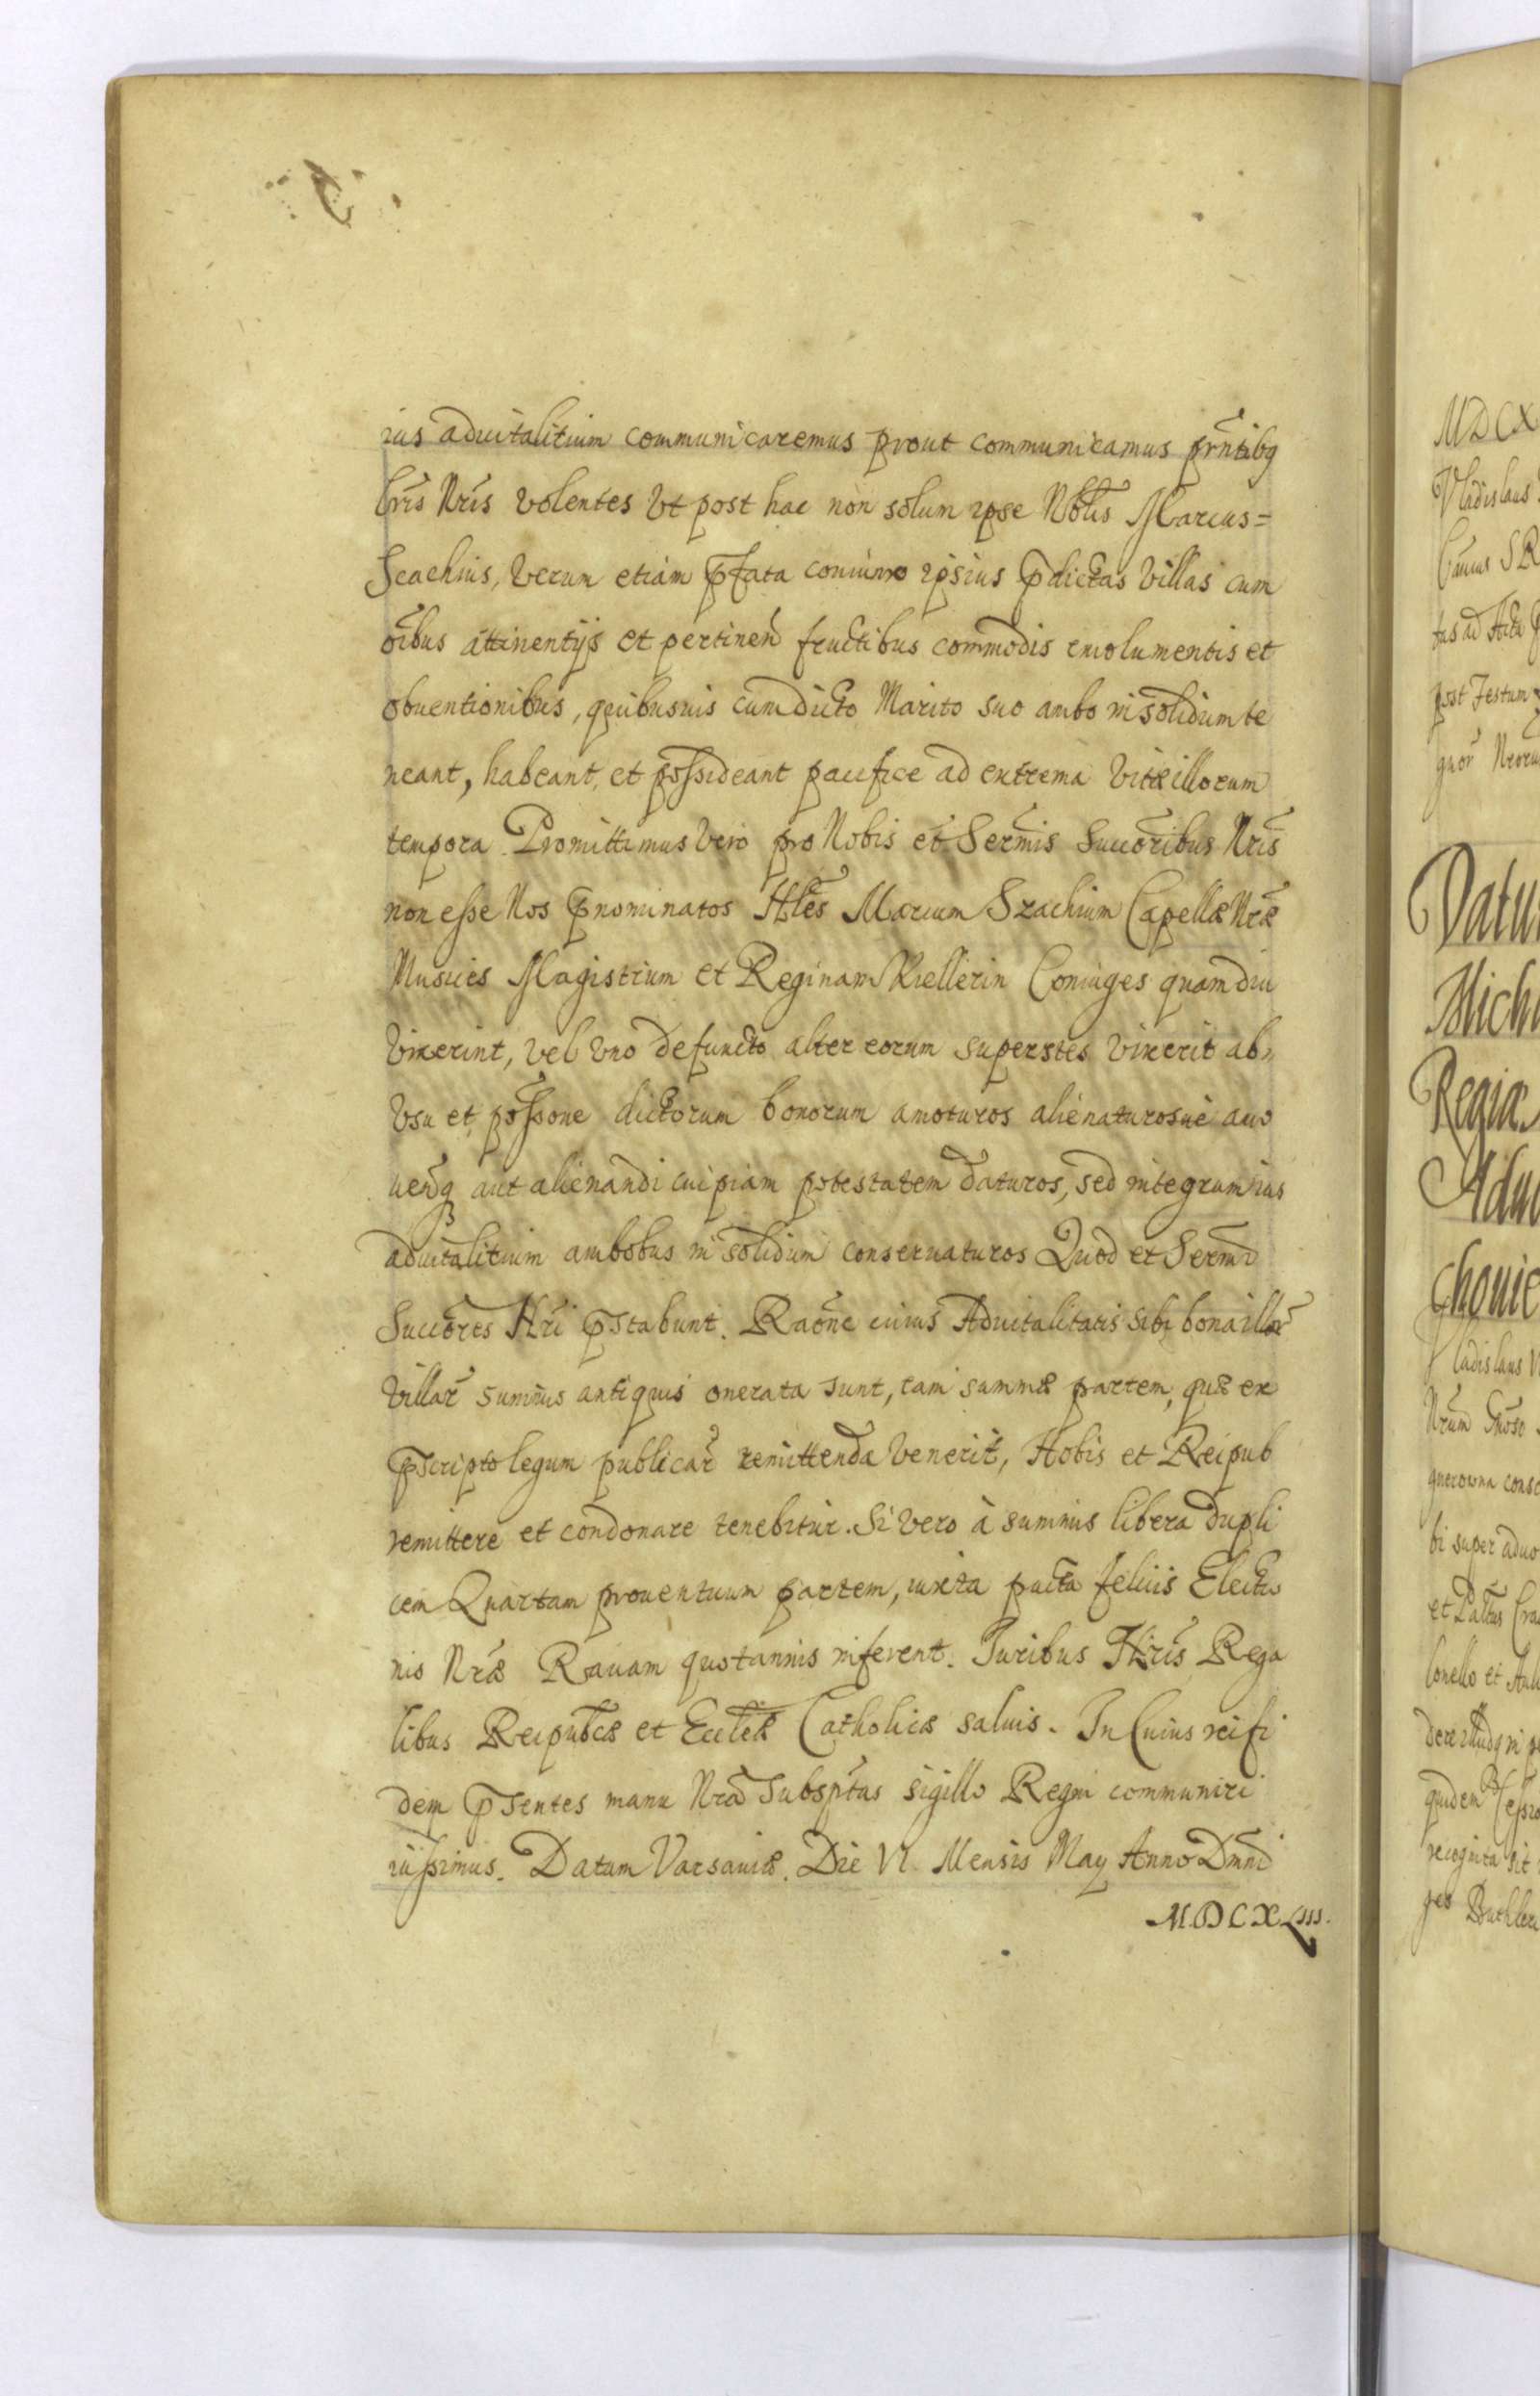 ius aduitalitium communicaremus prout communicamus prñtibq
lr̃is Nr̃is volentes Vt post hac non solum ipse Nobĩlis Marcus=
Scachius, Verum etiam p̃fata coniunx ipsius p̃dictas Villas cum
õibus attinentijs et pertineñ fructibus commodis emolumentis et
obuentionibus, quibusuis cum dicto Marito suo ambo in solidum te
neant, habeant, et possideant pacifice ad extrema Vitæ illorum
tempora. Promittimus Vero pro Nobis et Serm̃is Succõribus Nr̃is
non esse Nos p̃nominatos Nbl̃es Marcum Szachium Capellæ Nr̃æ
Musices Magistrum et Reginam Kiellerin Coniuges quam diu
Vixerint, Vel Vno defuncto alter eorum superstes Vixerit ab
Vsu et põssone dictorum bonorum amoturos alienaturosue amo
uendq aut alienandi cuipiam potestatem daturos, sed integrum ius
aduitalitium ambobus in solidum conseruaturos Quod et Serm̃i
Succõres Nr̃i p̃stabunt. Raõne cuius Aduitalitatis sibi bona illor̃
Villar̃ summis antiquis onerata sunt, tam summæ partem, quæ ex
p̃scripto legum publicar̃ remittenda Venerit, Nobis et Reipub
remittere et condonare tenebitur. Si Vero à summis libera dupli
cem Quartam prouentuum partem, iuxta pacta felicis Electio
nis Nr̃æ Rauam quotannis inferent. Juribus Nr̃is Rega
libus Reipubl̃cæ et Eccl̃iæ Catholicæ saluis. In Cuius rei fi
dem p̃sentes manu Nr̃a subsp̃tas sigillo Regni communiri
iussimus. Datum Varsauiæ. Die VI. Mensis May Anno Dm̃ni
M.DCXLIII.
MDCX
Vladislaus
post Festum
Datu
Mich
Regiæ
Adu
chouie
ladislaus
bi super aduo
quidem
recognita sit